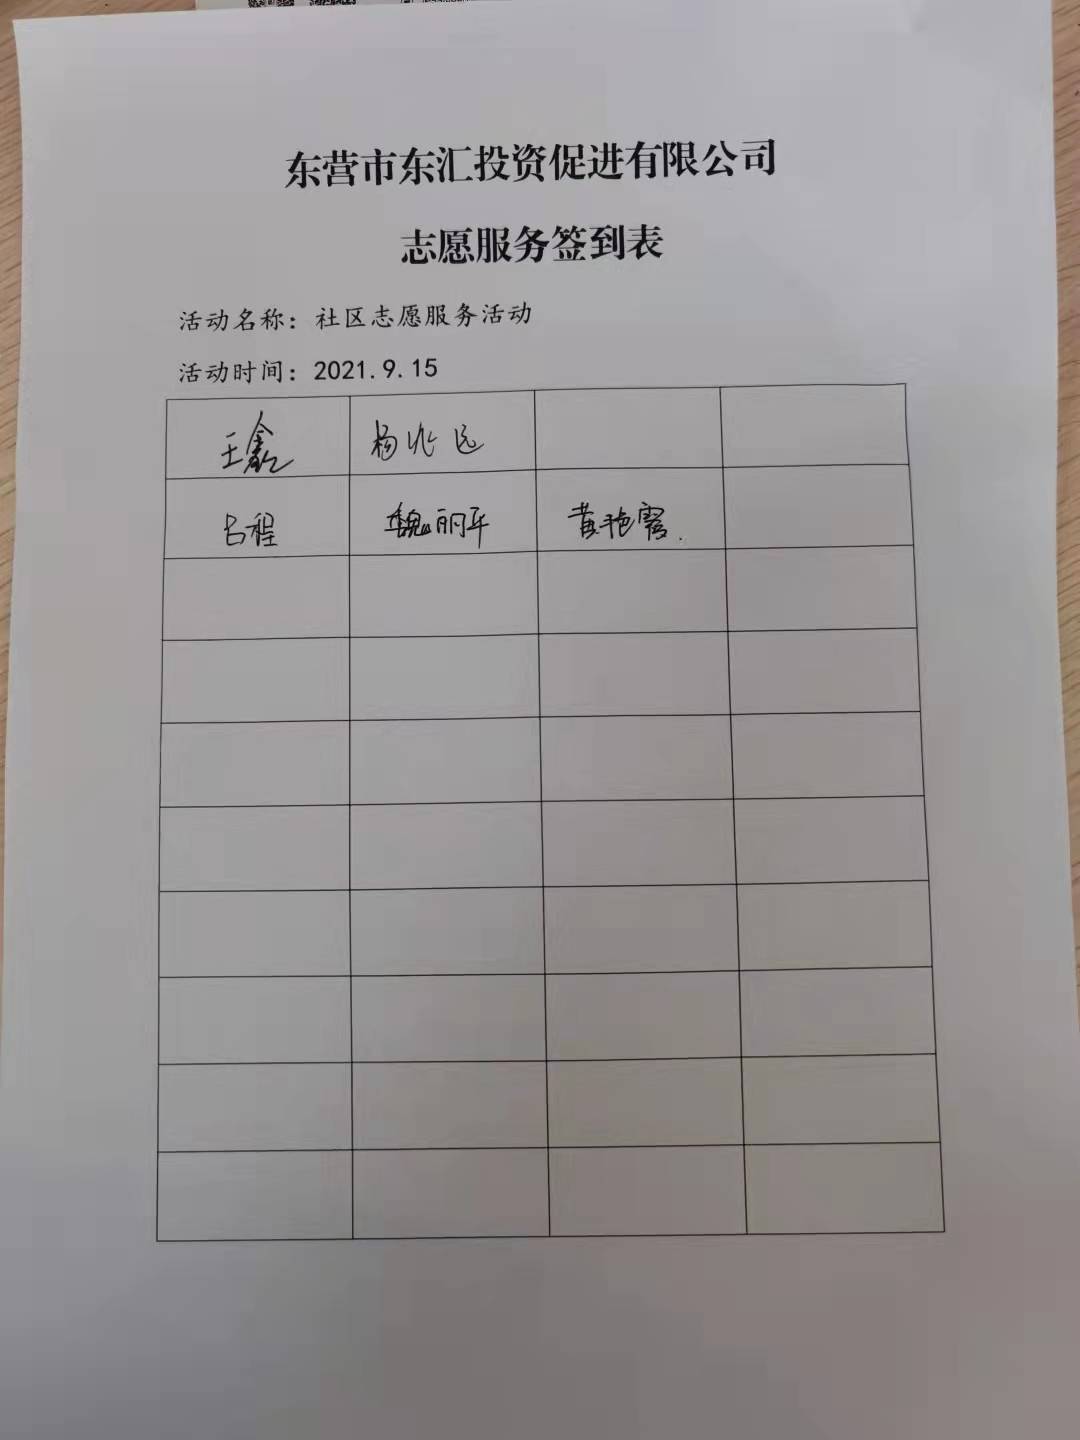 东营市东汇投资促进有限公司
志愿服务签到表
活动名称：社区志愿服务活动
活动时间：2021.9.15
王鑫 杨兆远
古程 魏丽平 黄艳霞